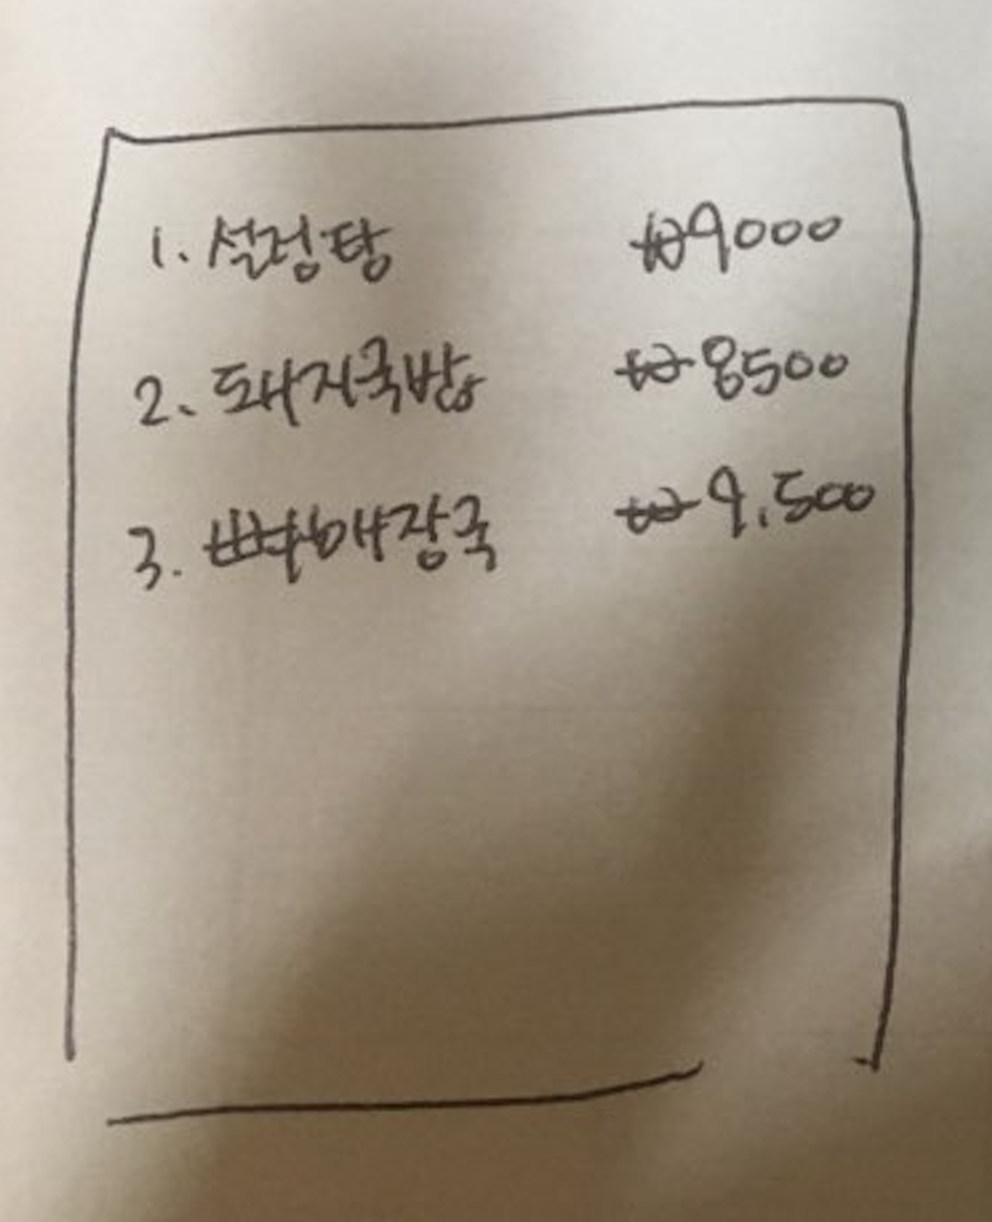 1. 설렁탕 ₩9000
2. 돼지국밥 ₩8500
3. 뼈해장국 ₩9,500